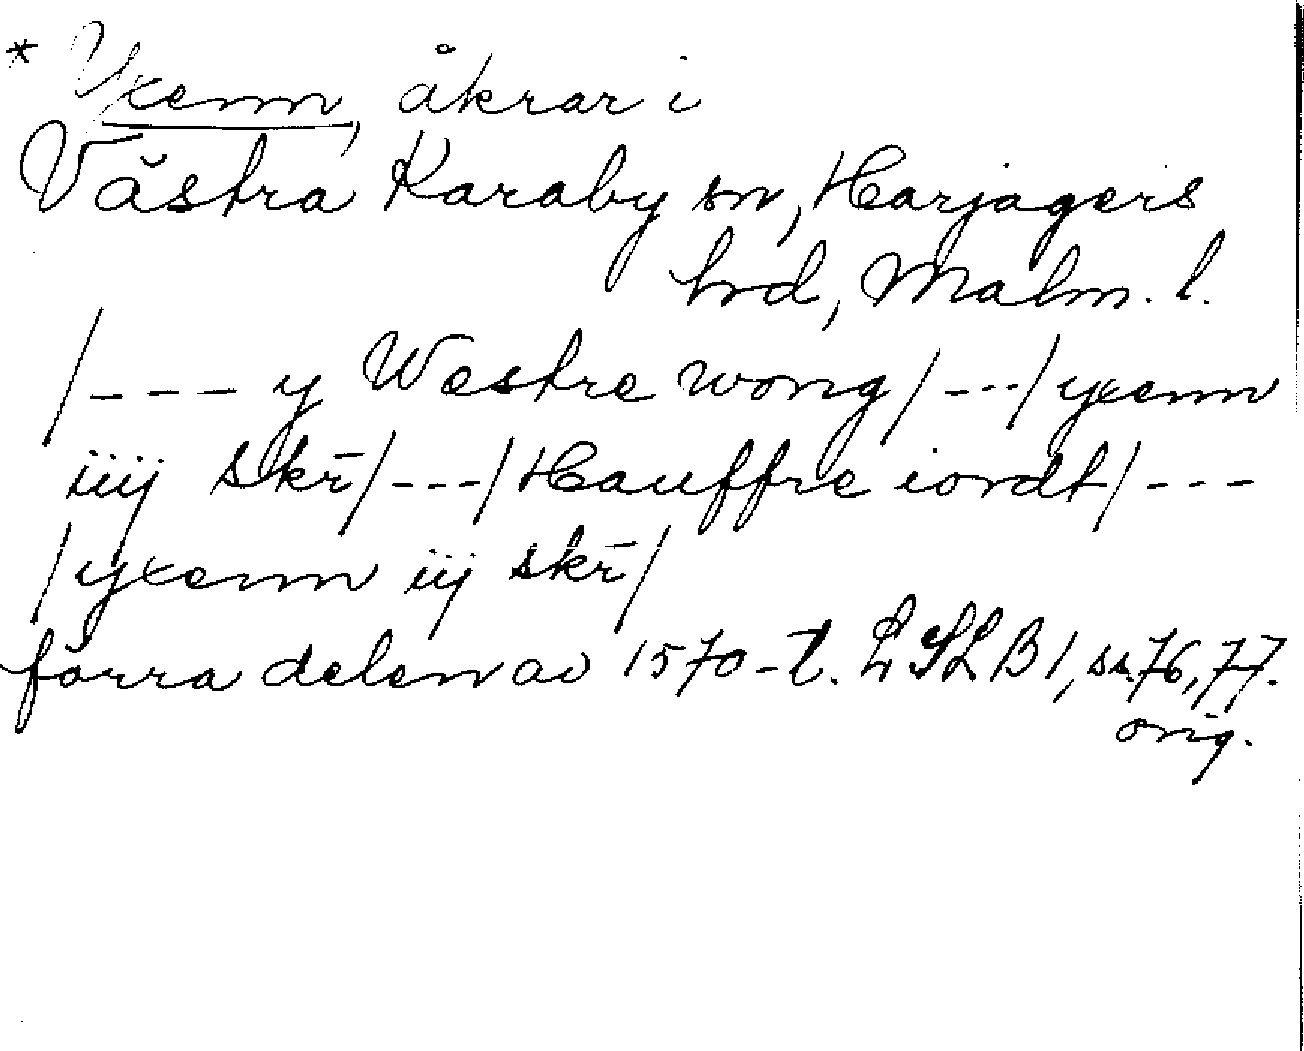 * Yxenn, åkrar i
Västra Karaby sn, Harjagers
hrd, Malm. l.
/--- y Westre wong/---/yxenn
iiij skr̄/---/Hauffre iordt/---
/yxenn iij skr̄/
förra delen av 1570-t. LSLB1, ss.76,77.
orig.